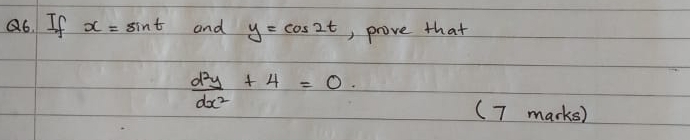 Q6. If x = sint and y = cos2t, prove that
d²y/dx² + 4 = 0.
(7 marks)